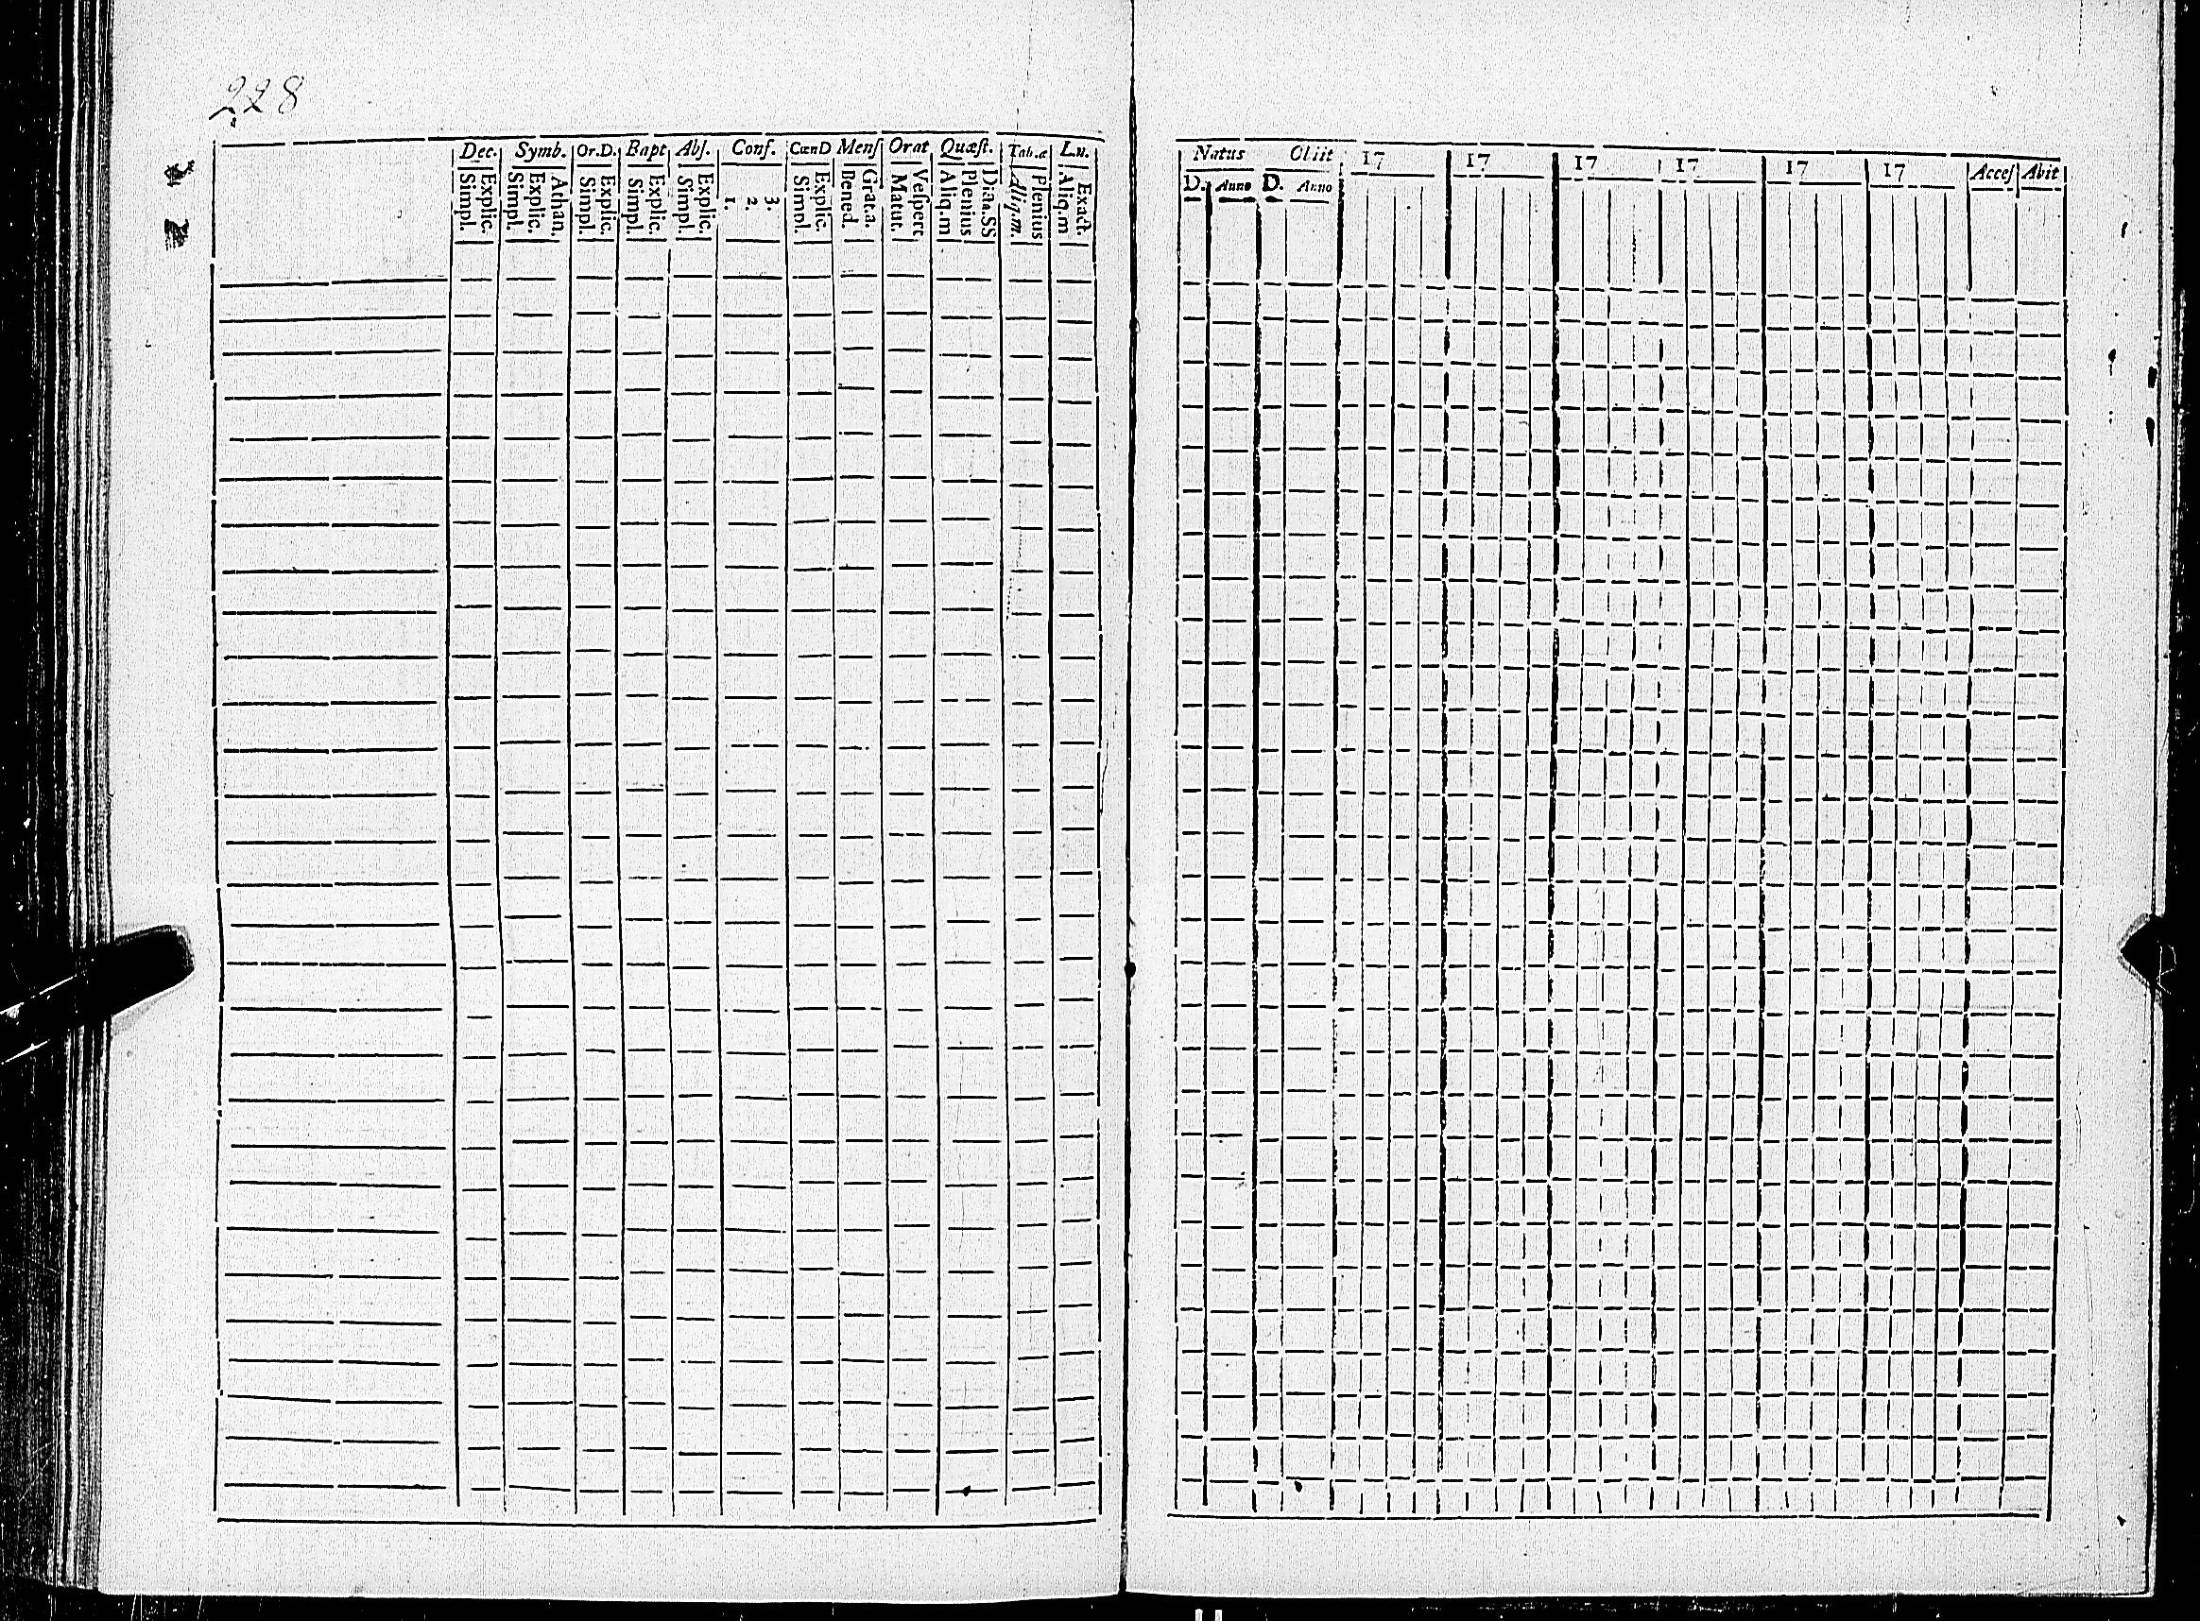 228
Dec. Symb. Or.D. Bapt Abſ. Conf. CœnD Menſ Orat Quæſt. Tab.æ L.u.
Explic. Simpl.
Athan. Explic. Simpl.
Explic. Simpl.
Explic. Simpl.
Explic. Simpl.
3. 2. 1.
Explic. Simpl.
Grat.a. Bened.
Veſpert Matut.
Diaa.SS Plenius Aliq.m
Plenius Aliq.m.
Exact. Aliq.m
Natus Obiit 17 17 17 17 17 17 Acceſ Abit
D. Anno D. Anno